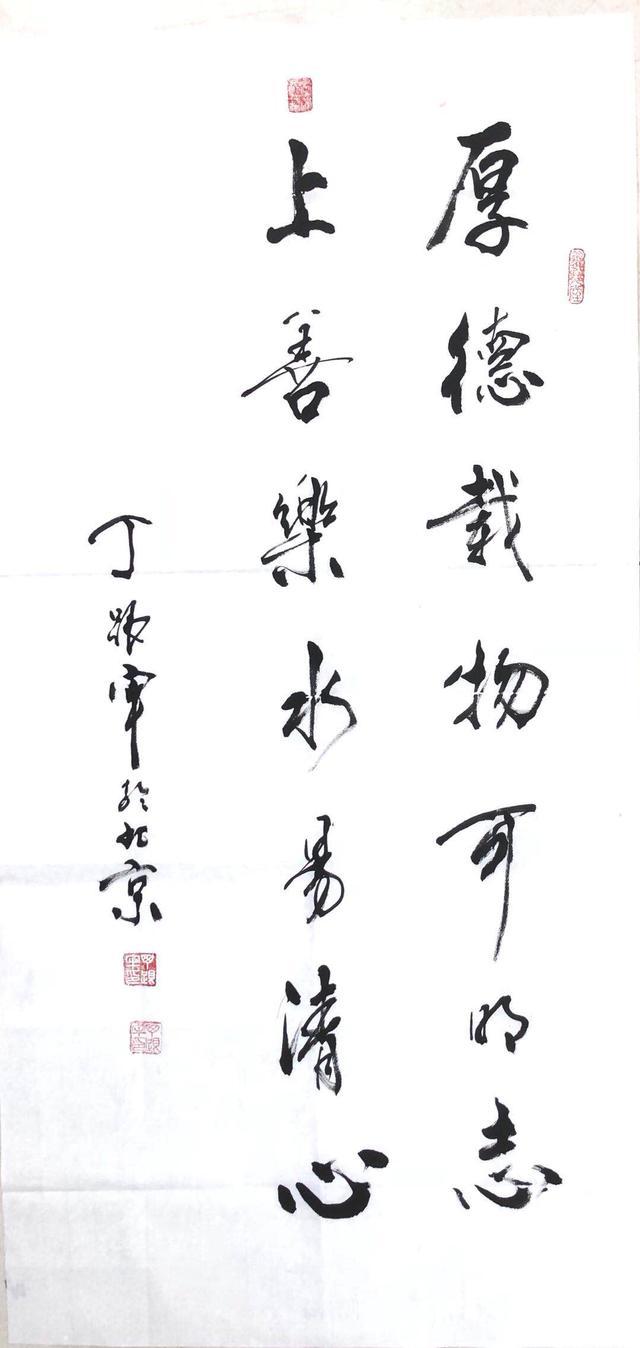 厚德载物可明志
上善樂水易清心
丁 軍於北京